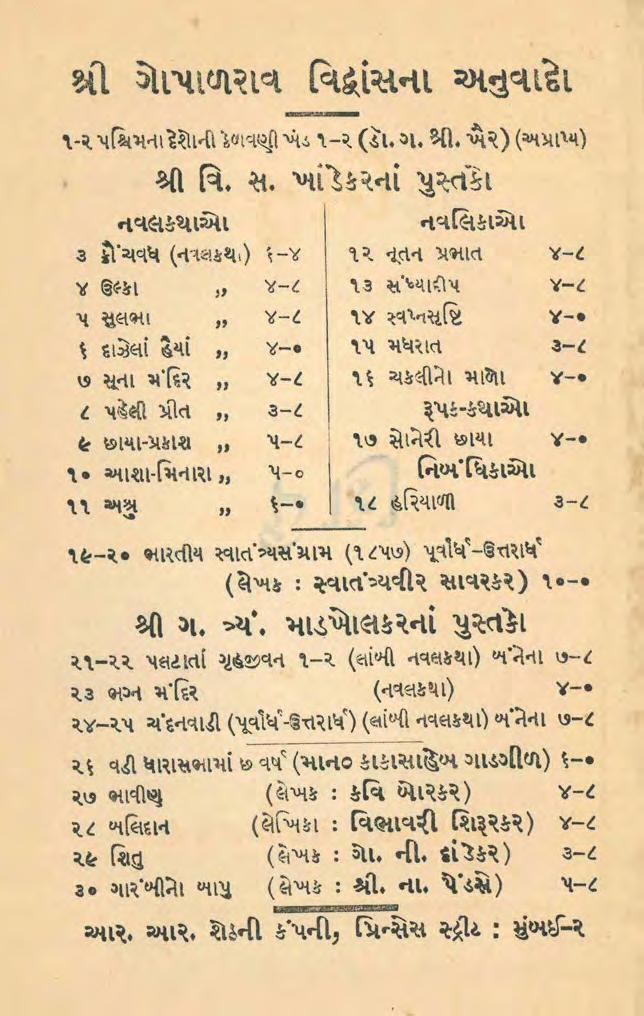 શ્રી ગોપાળરાવ વિદ્વાંસના અનુવાદો
૧-૨ પશ્ચિમના દેશોની કેળવણી ખંડ ૧-૨ (ડૉ. ગ. શ્રી. ખૈર) (અપ્રાપ્ય)
શ્રી વિ. સ. ખાંડેકરનાં પુસ્તકો
નવલકથાઓ
૩ ક્રૌંચવધ (નવલકથા) ૬-૪
૪ ઉલ્કા ,, ૪-૮
૫ સુલભા ,, ૪-૮
૬ દાઝેલાં હૈયાં ,, ૪-૦
૭ સૂના મંદિર ,, ૪-૮
૮ પહેલી પ્રીત ,, ૩-૮
૯ છાયા-પ્રકાશ ,, ૫-૮
૧૦ આશા-મિનારા ,, ૫-૦
૧૧ અશ્રુ ,, ૬-૦
નવલિકાઓ
૧૨ નૂતન પ્રભાત ૪-૮
૧૩ સંધ્યાદીપ ૪-૮
૧૪ સ્વપ્નસૃષ્ટિ ૪-૦
૧૫ મધરાત ૩-૮
૧૬ ચકલીનો માળો ૪-૦
રૂપક-કથાઓ
૧૭ સોનેરી છાયા ૪-૦
નિબંધિકાઓ
૧૮ હરિયાળી ૩-૮
૧૯-૨૦ ભારતીય સ્વાતંત્ર્યસંગ્રામ (૧૮૫૭) પૂર્વાર્ધ-ઉત્તરાર્ધ
(લેખક : સ્વાતંત્ર્યવીર સાવરકર) ૧૦-૦
શ્રી ગ. ત્ર્યં. માડખોલકરનાં પુસ્તકો
૨૧-૨૨ પલટાતાં ગૃહજીવન ૧-૨ (લાંબી નવલકથા) બંનેના ૭-૮
૨૩ ભગ્ન મંદિર (નવલકથા) ૪-૦
૨૪-૨૫ ચંદનવાડી (પૂર્વાર્ધ-ઉત્તરાર્ધ) (લાંબી નવલકથા) બંનેના ૭-૮
૨૬ વડી ધારાસભામાં છ વર્ષ (માન૦ કાકાસાહેબ ગાડગીળ) ૬-૦
૨૭ ભાવીણ (લેખક : કવિ બોરકર) ૪-૮
૨૮ બલિદાન (લેખિકા : વિભાવરી શિરૂરકર) ૪-૮
૨૯ શિતુ (લેખક : ગો. ની. દાંડેકર) ૩-૮
૩૦ ગારંબીનો બાપુ (લેખક : શ્રી. ના. પેંડસે) ૫-૮
આર. આર. શેઠની કંપની, પ્રિન્સેસ સ્ટ્રીટ : મુંબઈ-૨